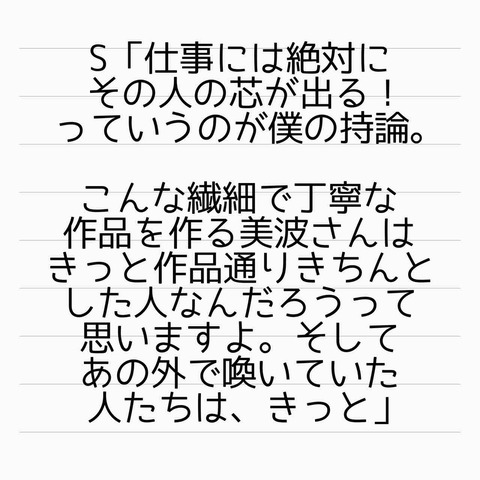 S「仕事には絶対に
その人の芯が出る！
っていうのが僕の持論。
こんな繊細で丁寧な
作品を作る美波さんは
きっと作品通りきちんと
した人なんだろうって
思いますよ。そして
あの外で喚いていた
人たちは、きっと」